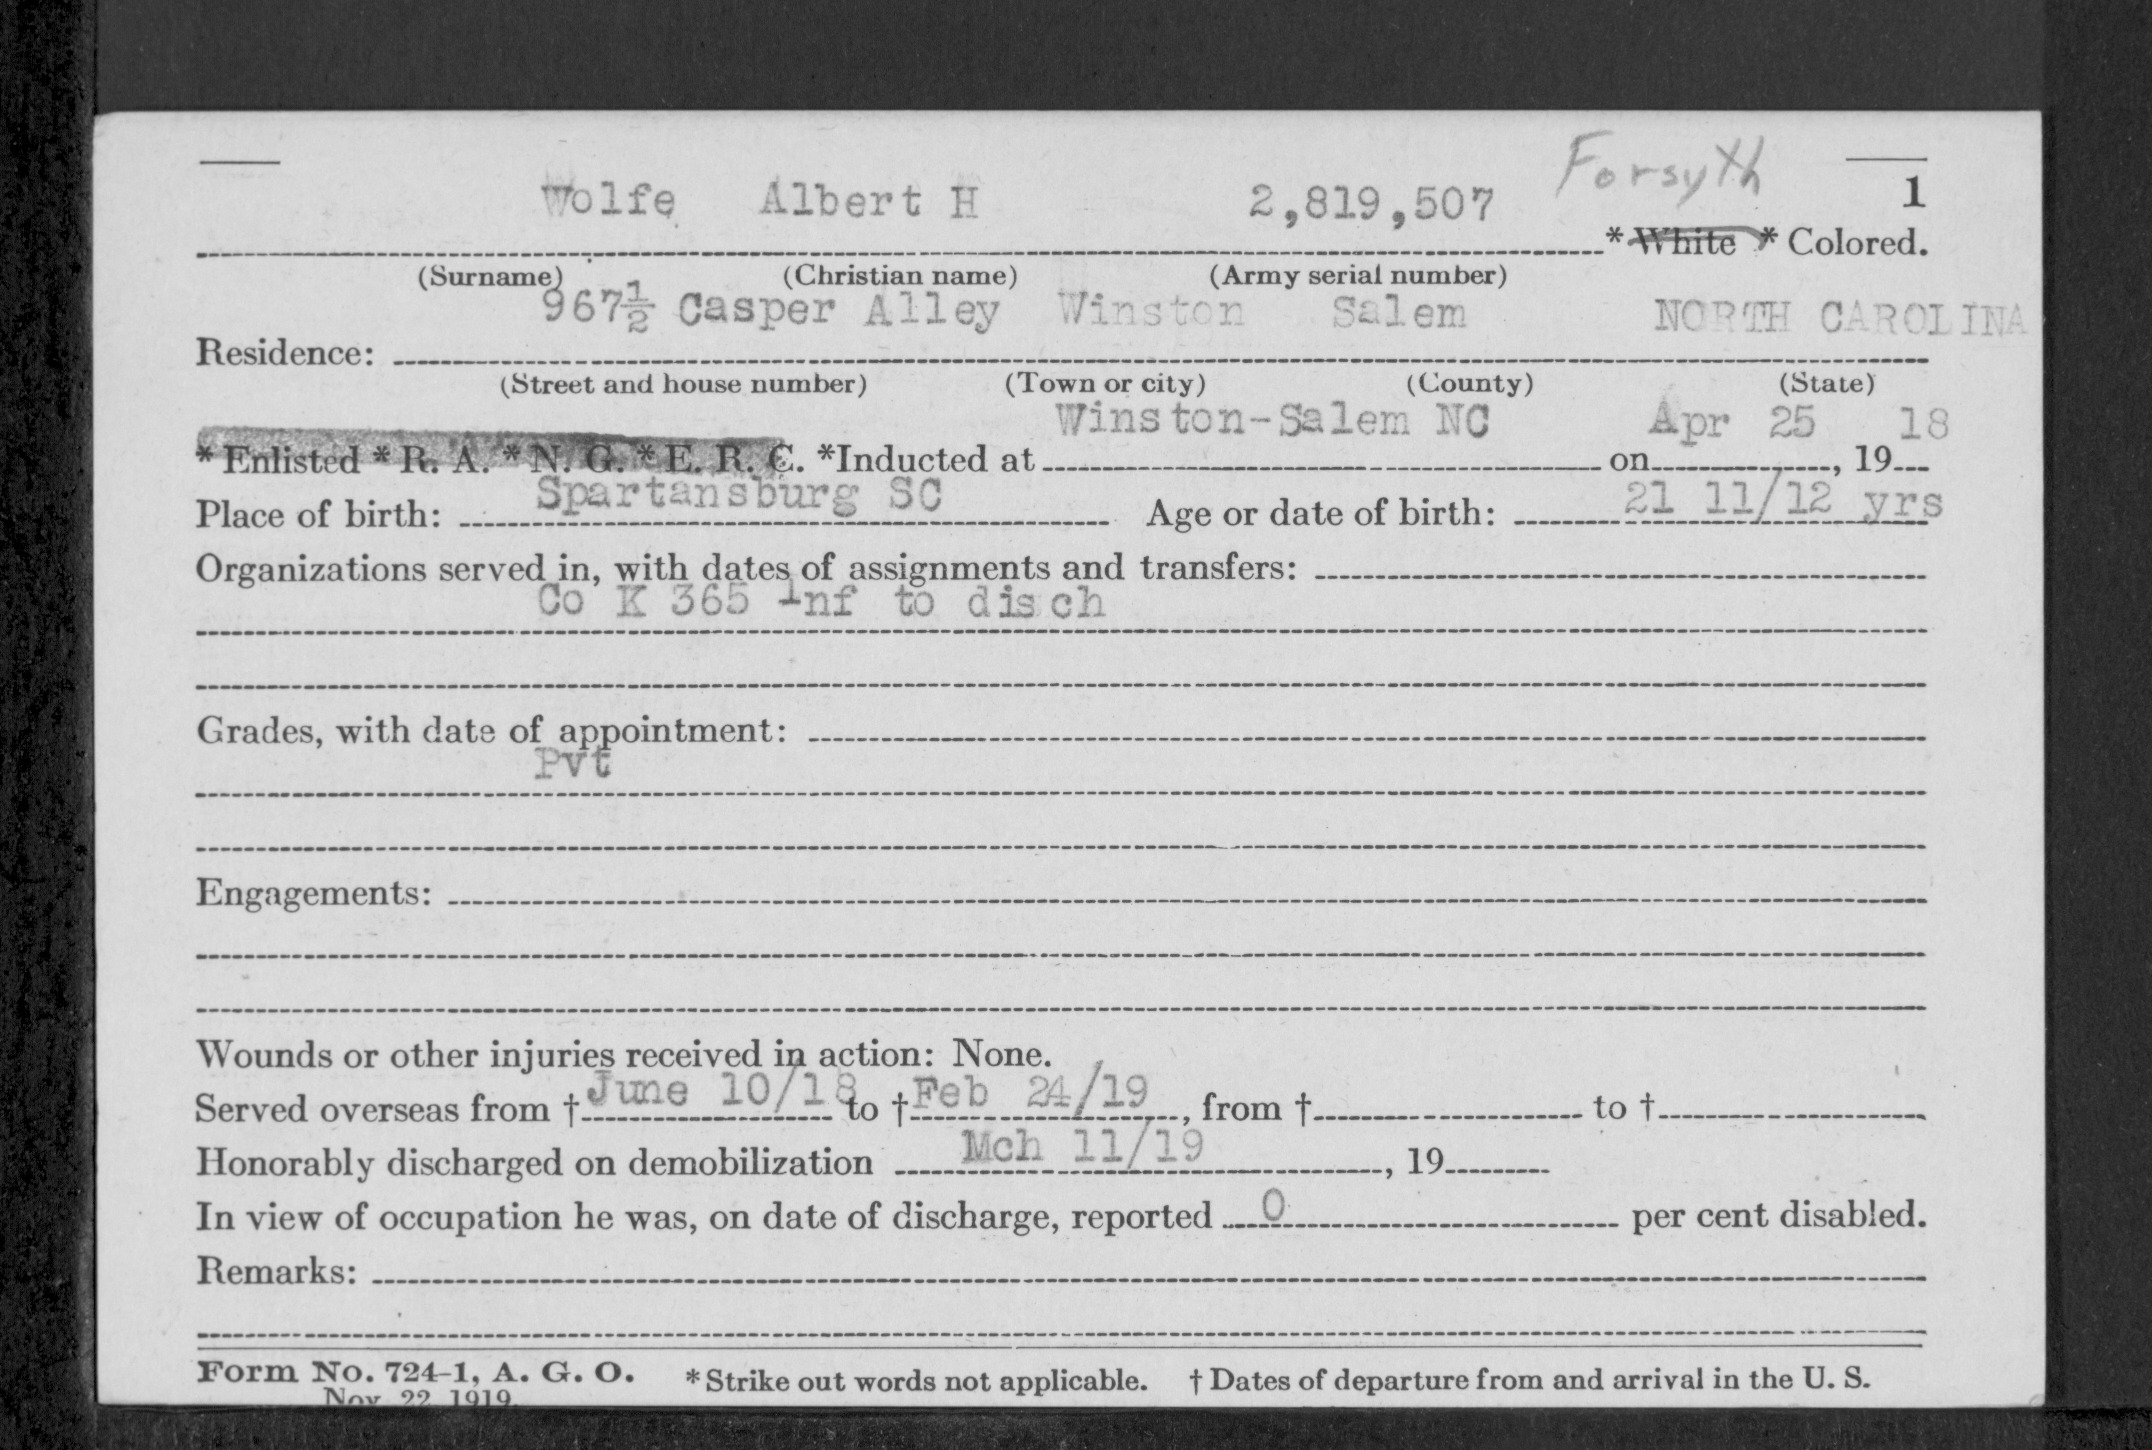 Forsyth
1
Wolfe Albert H 2,819,507
* White * Colored.
(Surname) (Christian name) (Army serial number)
967½ Casper Alley Winston Salem NORTH CAROLINA
Residence:
(Street and house number) (Town or city) (County) (State)
Winston-Salem NC Apr 25 18
* Enlisted * R. A. * N. G. * E. R. C. *Inducted at on , 19
Place of birth: Spartansburg SC Age or date of birth: 21 11/12 yrs
Organizations served in, with dates of assignments and transfers:
Co K 365 Inf to disch
Grades, with date of appointment:
Pvt
Engagements:
Wounds or other injuries received in action: None.
Served overseas from † June 10/18 to † Feb 24/19, from † to †
Honorably discharged on demobilization Mch 11/19, 19
In view of occupation he was, on date of discharge, reported 0 per cent disabled.
Remarks:
Form No. 724-1, A. G. O. * Strike out words not applicable. † Dates of departure from and arrival in the U. S.
Nov. 22, 1919.